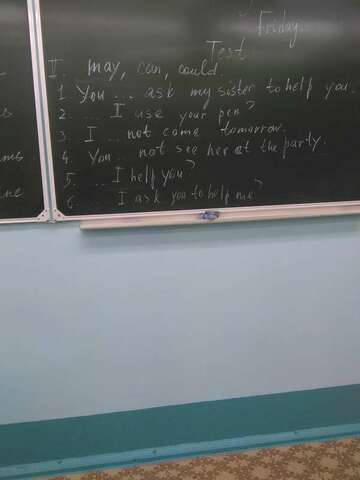 Friday
Test
I. may, can, could.
1 You ... ask my sister to help you.
2. ... I use your pen?
3. I ... not come tomorrow.
4. You .. not see her at the party.
5. ... I help you?
6. ... I ask you to help me?